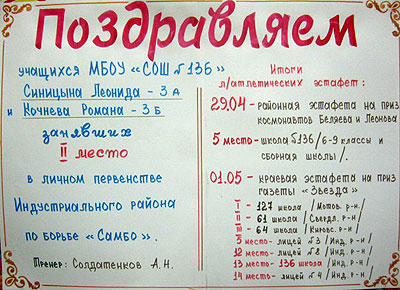 Поздравляем
учащихся МБОУ «СОШ №136»
Синицына Леонида - 3А
и Кочнева Романа - 3Б
занявших
II место
в личном первенстве
Индустриального района
по борьбе «Самбо».
Тренер: Солдатенков А.Н.
Итоги
л/атлетических эстафет:
29.04 - районная эстафета на приз
космонавтов Беляева и Леонова
5 место - школа №136 /6-9 классы и
сборная школы/.
01.05 - краевая эстафета на приз
газеты «Звезда»
I - 127 школа /Мотов. р-н/
II - 61 школа /Свердл. р-н/
III - 64 школа /Кировс. р-н/
5 место - лицей №3 /Инд. р-н/
12 место - лицей №8 /Инд. р-н/
13 место - 136 школа /Инд. р-н/
14 место - лицей №4 /Инд. р-н/